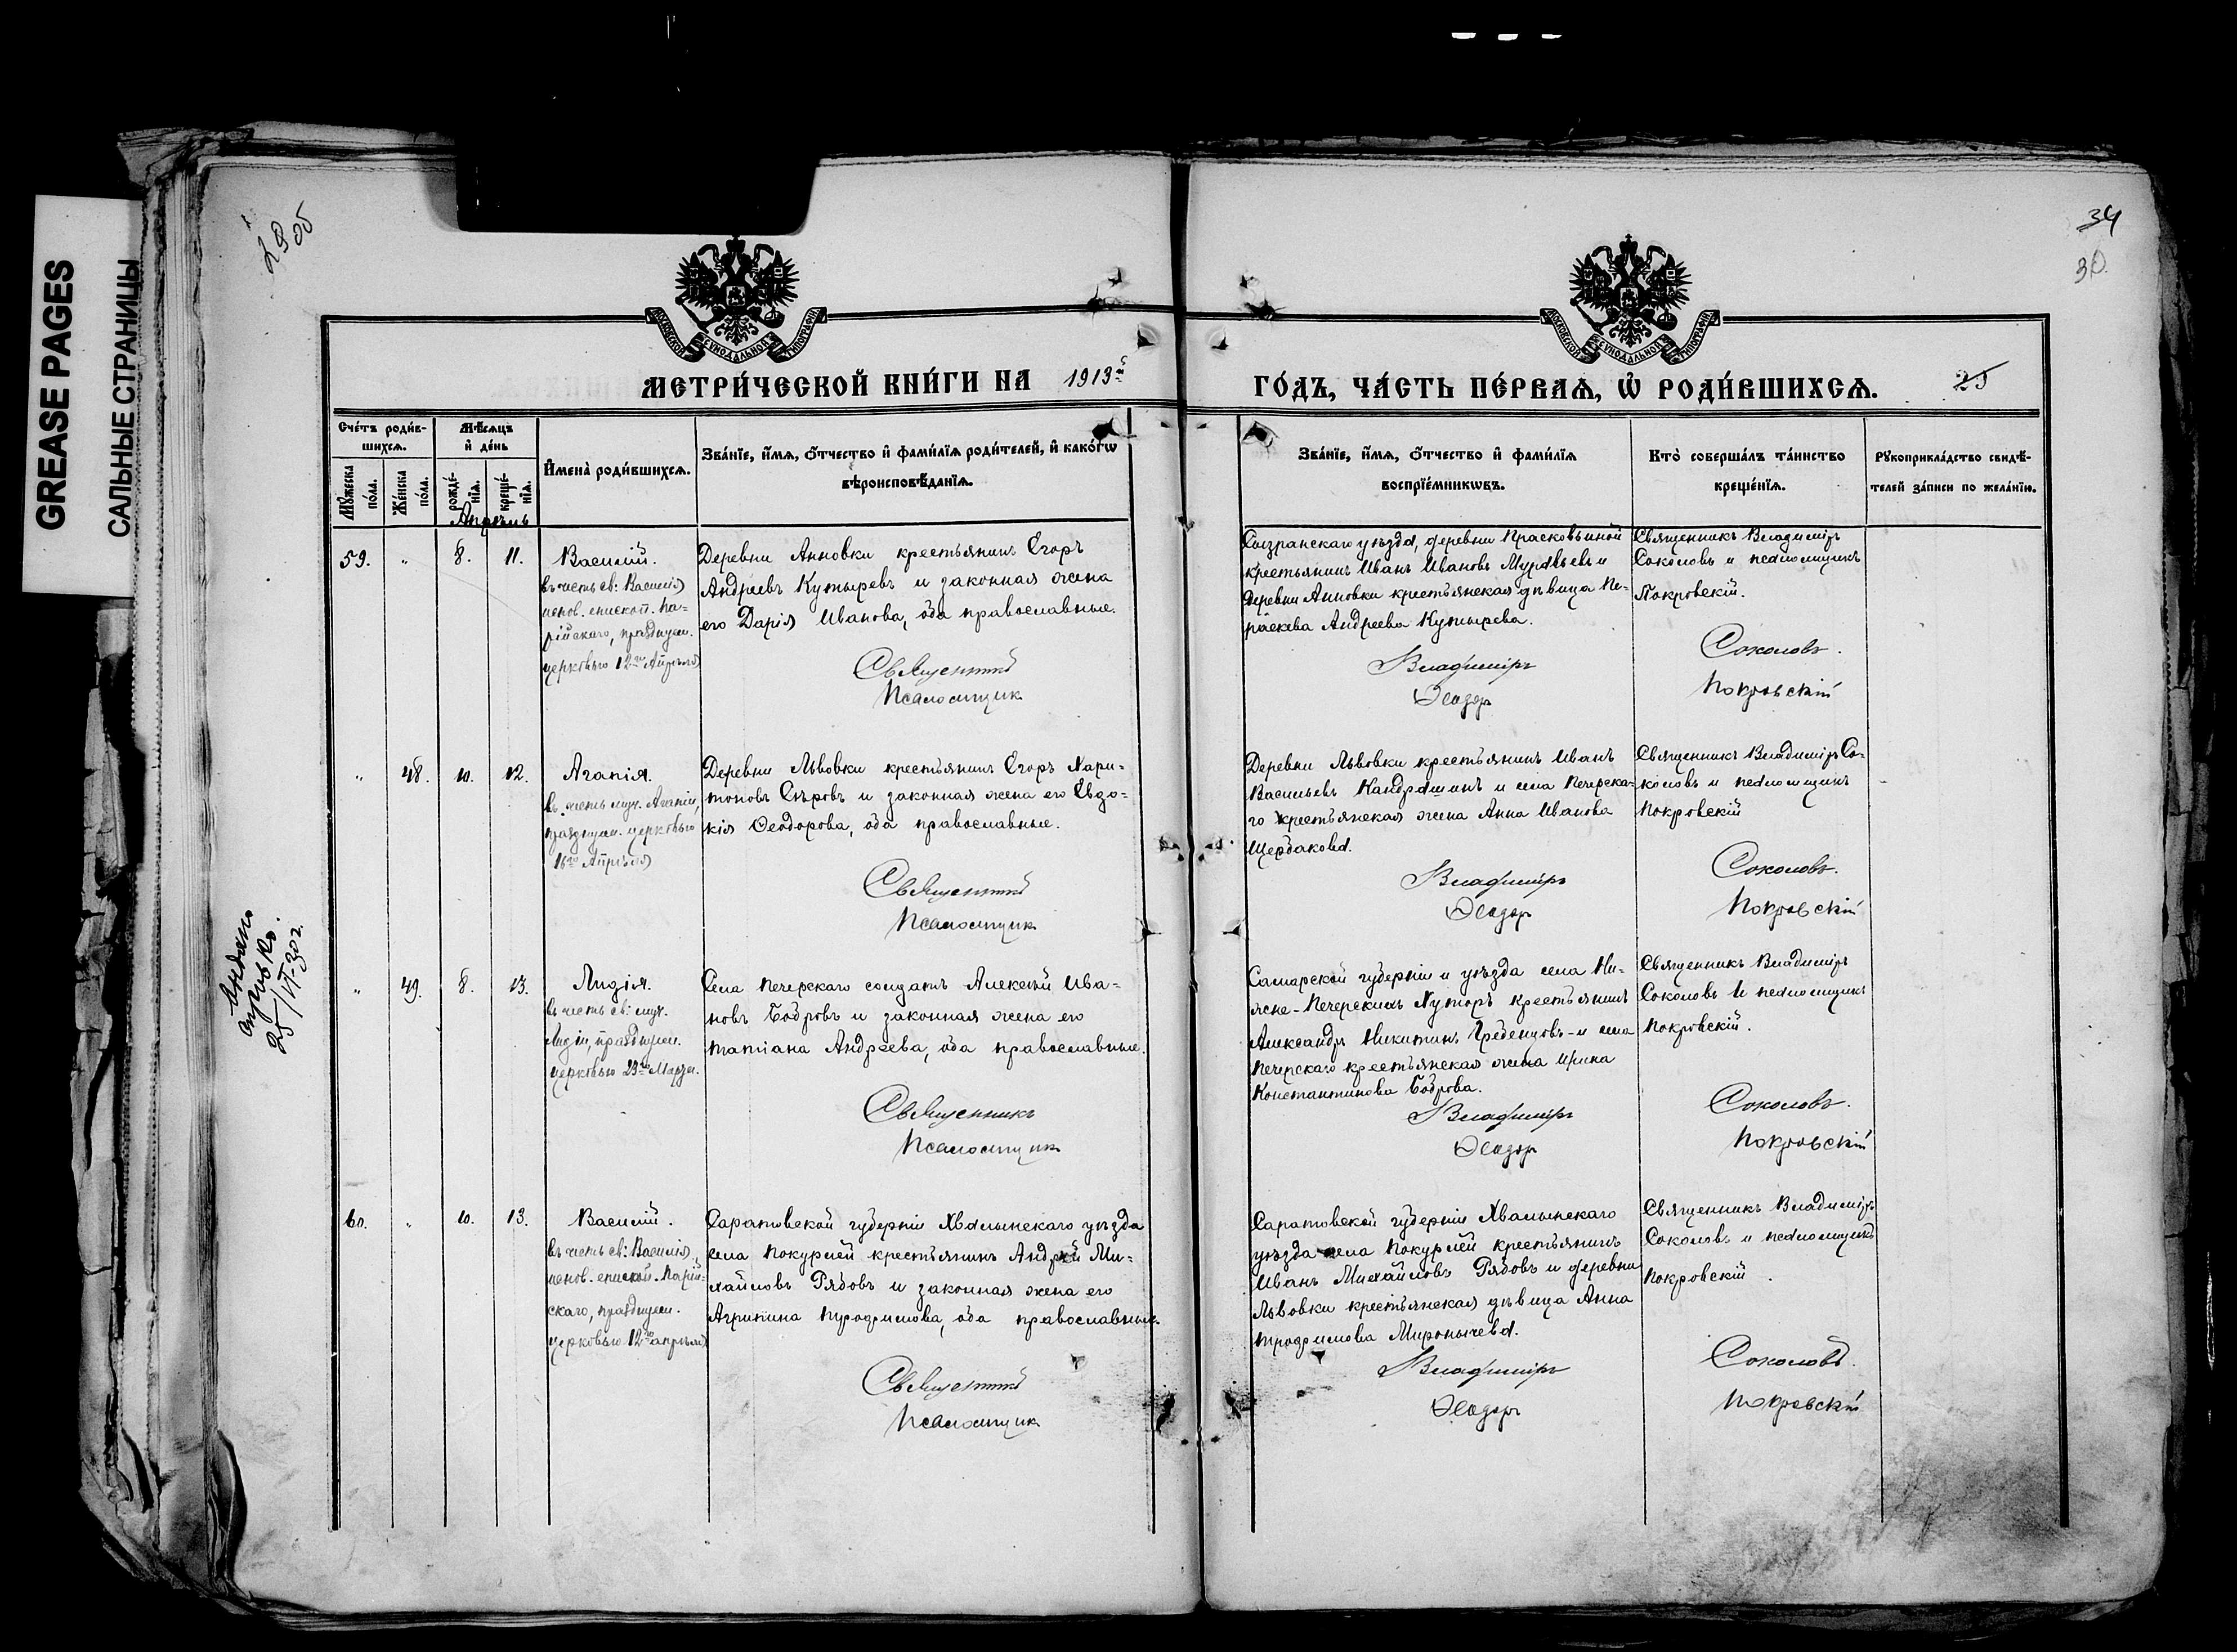 GREASE PAGES
САЛЬНЫЕ СТРАНИЦЫ
29об
34
30.
МОСКОВСКОЙ СУНОДАЛЬНОЙ ТИПОГРАФІИ
МОСКОВСКОЙ СУНОДАЛЬНОЙ ТИПОГРАФІИ
МЕТРИ́ЧЕСКОЙ КНИ́ГИ НА 1913й
ГО́ДЪ, ЧА́СТЬ ПЕ́РВАѦ, Ѡ҆ РОДИ́ВШИХСѦ. 25
Сче́тъ роди́в-
шихсѧ.
Мѣ́сѧцъ
и҆ де́нь
Мꙋ́жеска
по́ла.
Же́нска
по́ла.
рожде́-
нїѧ.
креще́-
нїѧ.
И҆мена̀ роди́вшихсѧ.
Зва́нїе, и҆́мѧ, ѻ҆́тчество и҆ фами́лїѧ роди́телей, и҆ како́гѡ
вѣроисповѣ́данїѧ.
Зва́нїе, и҆́мѧ, ѻ҆́тчество и҆ фами́лїѧ
воспрїе́мникѡвъ.
Кто̀ соверша́лъ та́инство
креще́нїѧ.
Рꙋкоприкла́дство свидѣ́-
телей за́писи по жела́нїю.
Апрѣль
59. " 8. 11.
Василій.
въ честь св: Василія
испов. епископ. Па-
рійскаго, празднуем.
церковью 12го Апрѣля
Деревни Анновки крестьянинъ Егоръ
Андреевъ Купыревъ и законная жена
его Дарія Иванова, оба православные.
Священник
Псаломщик
Сызранскаго уѣзда, деревни Прасковьиной
крестьянинъ Иванъ Ивановъ Муравьевъ и
деревни Анновки крестьянская дѣвица Па-
раскева Андреева Купырева.
Владиміръ
Ѳеодор
Священникъ Владиміръ
Соколовъ и псаломщикъ
Покровскій.
Соколовъ.
Покровскій
" 48. 10. 12.
Агапія.
въ честь муч. Агапіи,
празднуем. церковью
16го Апрѣля
Деревни Львовки крестьянинъ Егоръ Хари-
тоновъ Сѣровъ и законная жена его Евдо-
кія Ѳеодорова, оба православные.
Священник
Псаломщик
Деревни Львовки крестьянинъ Иванъ
Васильевъ Кандрашинъ и села Печерска-
го крестьянская жена Анна Иванова
Щербакова.
Владиміръ
Ѳеодор
Священникъ Владиміръ Со-
коловъ и псаломщикъ
Покровскій
Соколовъ.
Покровскій
25/VI-30г.
" 49. 8. 13.
Лидія.
въ честь св: муч.
Лидіи, празднуем.
церковью 23го Марта.
Села Печерскаго солдатъ Алексѣй Ива-
новъ Бобровъ и законная жена его
Татіана Андреева, оба православные.
Священникъ
Псаломщик
Самарской губерніи и уѣзда села Ни-
жне-Печерскихъ Хуторъ крестьянинъ
Александръ Никитинъ Гребенцовъ и села
Печерскаго крестьянская жена Ирина
Константинова Боброва.
Владиміръ
Ѳеодор
Священникъ Владиміръ
Соколовъ и псаломщикъ
Покровскій.
Соколовъ.
Покровскій
60. " 10. 13.
Василій.
въ честь св: Василія,
испов. епископ. Парій-
скаго, празднуем.
церковью 12го апрѣля
Саратовской губерніи Хвалынскаго уѣзда
села Покурлей крестьянинъ Андрей Ми-
хайловъ Рябовъ и законная жена его
Агрипина Трофимова, оба православные.
Священник
Псаломщик
Саратовской губерніи Хвалынскаго
уѣзда села Покурлей крестьянинъ
Иванъ Михайловъ Рябовъ и деревни
Львовки крестьянская дѣвица Анна
Трофимова Миронычева.
Владиміръ
Ѳеодоръ
Священникъ Владиміръ
Соколовъ и псаломщикъ
Покровскій.
Соколовъ.
Покровскій